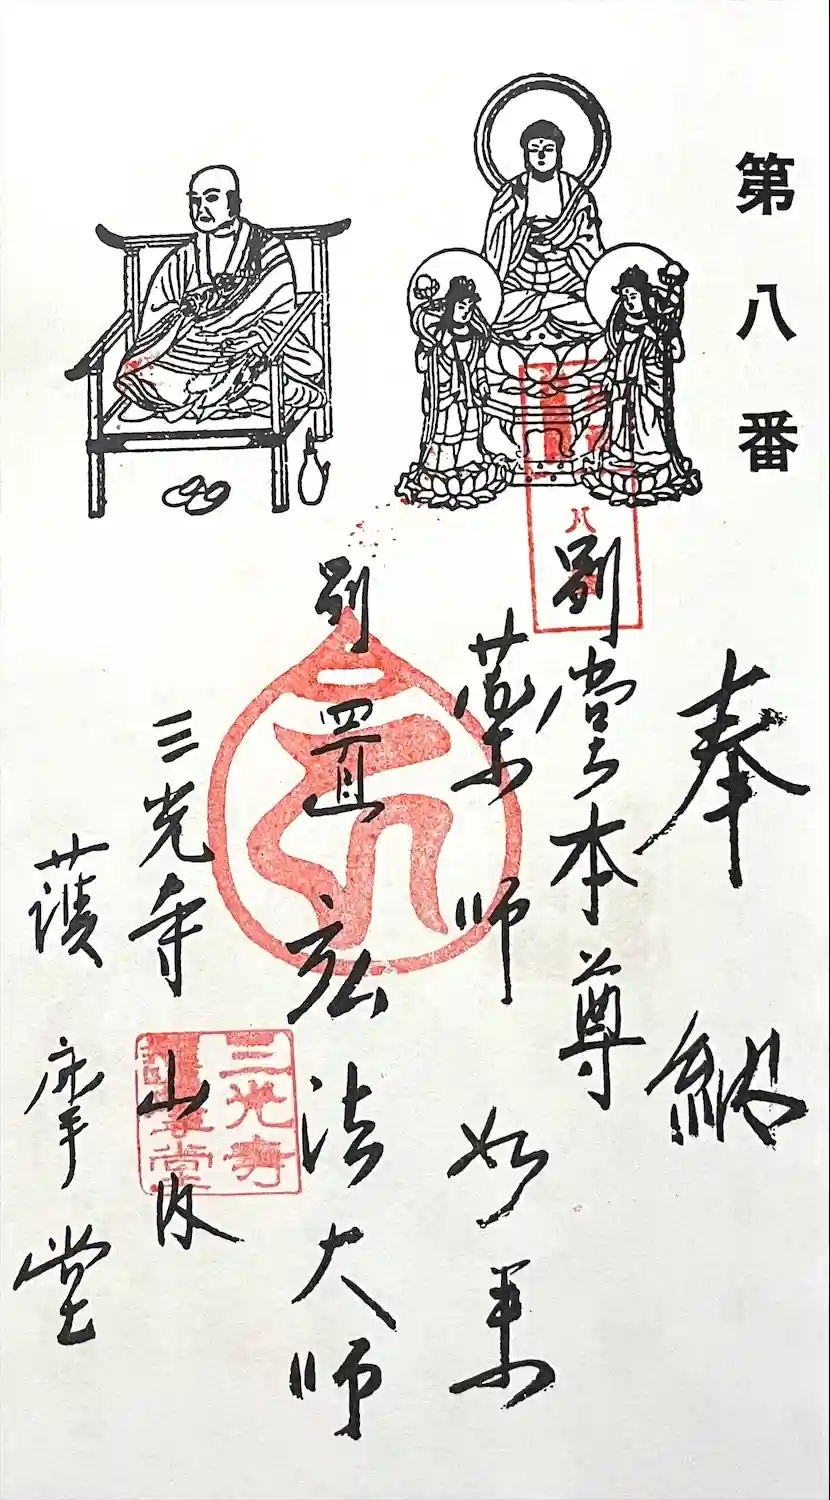 第八番
奉納
別堂本尊
薬師如来
別置弘法大師
三光寺山
護摩堂
八
三光寺
護摩堂